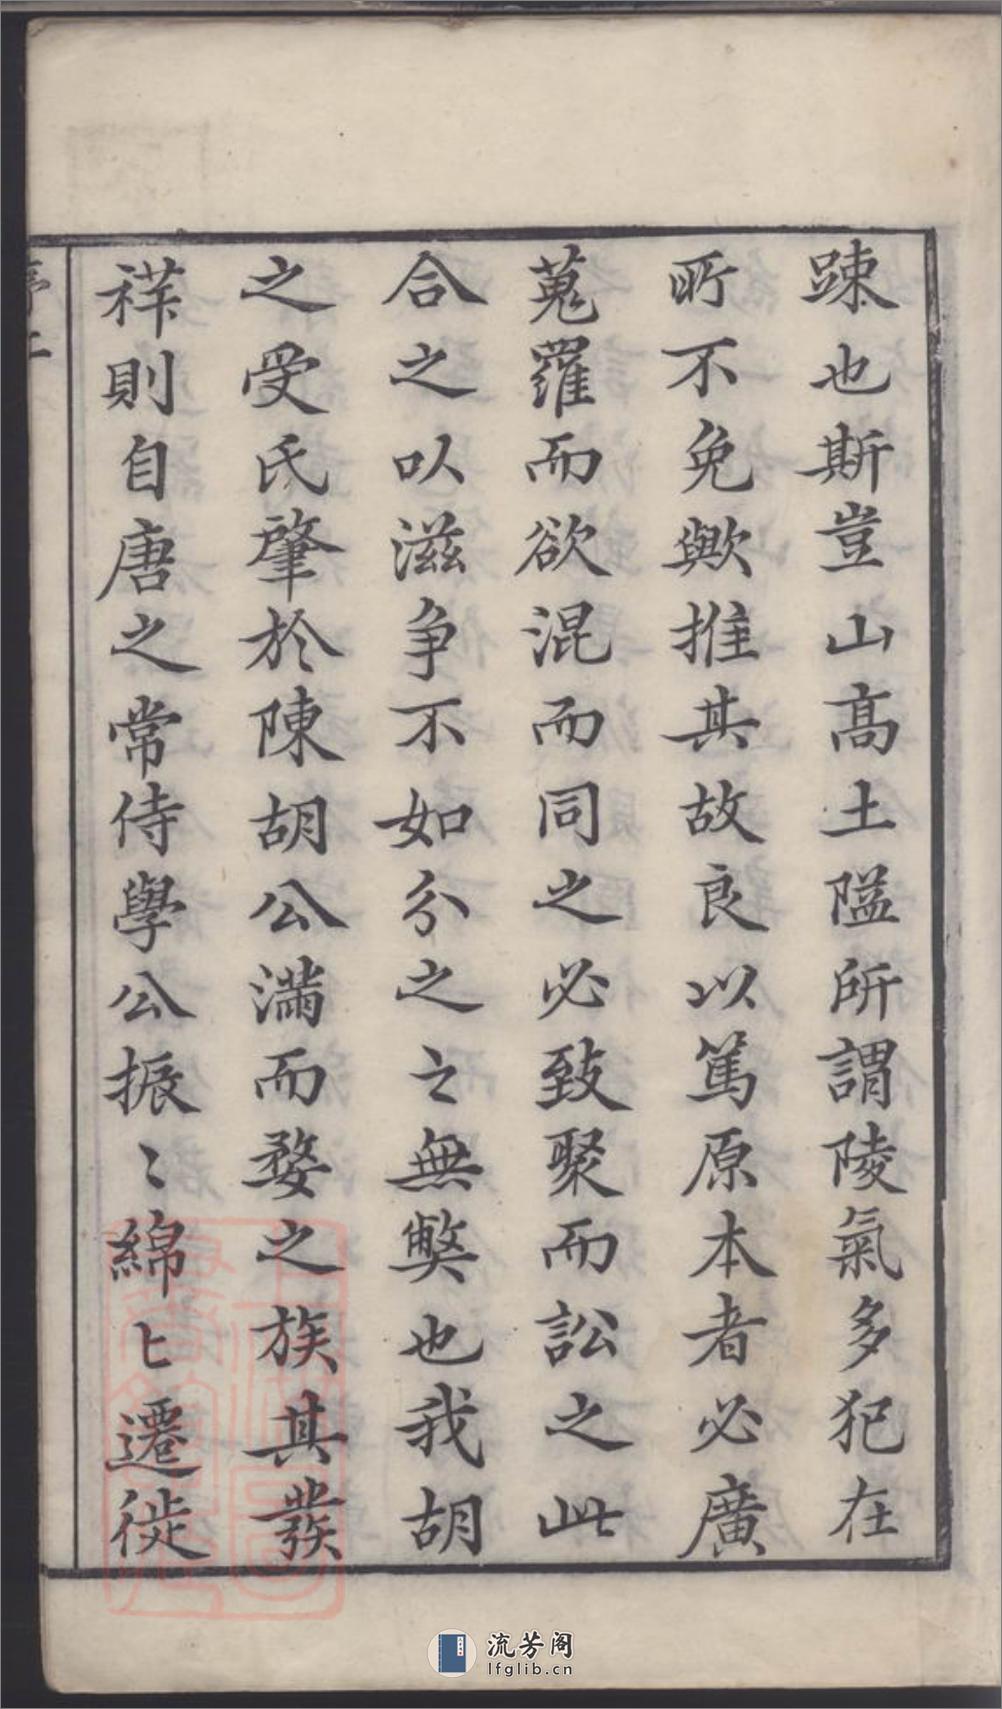 踈也斯豈山高土隘所謂陵氣多犯在
所不免歟推其故良以篤原本者必廣
蒐羅而欲混而同之必致聚而訟之此
合之以滋争不如分之之無獘也我胡
之受氏肇於陳胡公滿而婺之族其發
祥則自唐之常侍學公振〻綿〻遷徙
流芳阁
lfglib.cn